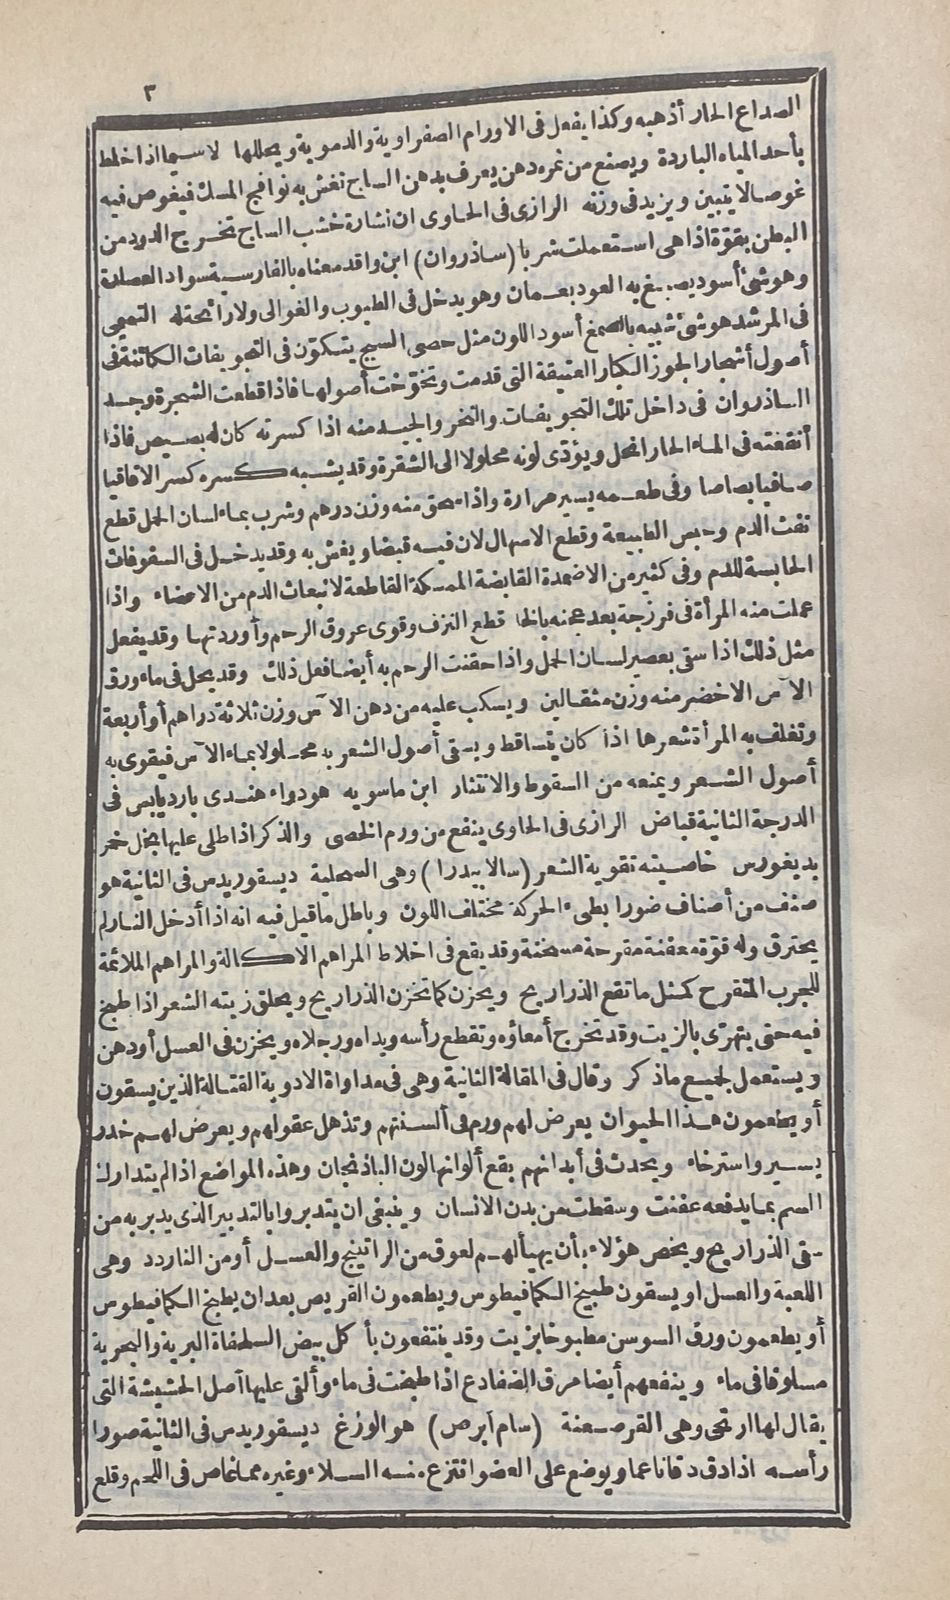 ٣
الصداع الحار أذهبه وكذا يفعل فى الاورام الصفراوية والدموية ويحللها لا سيما اذا خلط
بأحد المياه الباردة ويصنع من ثمره دهن يعرف بدهن الساج تغش به نوافج المسك فيغوص فيه
غوصا لا يتبين ويزيد فى وزنه الرازى فى الحاوى ان نشارة خشب الساج تخرج الدود من
البطن بقوّة اذا هى استعملت شربا (ساذروان) ابن وافد معناه بالفارسية سواد العصارة
وهو شئ أسود يصبغ به العود بعمان وهو يدخل فى الطيوب والغوالى ولا رائحة له التميمى
فى المرشد هو شئ شبيه بالصمغ أسود اللون مثل حصى السبج يتكوّن فى التجويفات الكائنة فى
أصول أشجار الجوز الكبار العتيقة التى قدمت وتخوّخت أصولها فاذا قطعت الشجرة وجد
الساذروان فى داخل تلك التجويفات والنخر والجيد منه اذا كسرته كان له بصيص فاذا
أنقعته فى الماء الحار انحل ويؤدّى لونه محلولا الى الشقرة وقد يشبه كسره كسر الاقاقيا
صافيا بصاصا وفى طعمه يسير مرارة واذا سحق منه وزن درهم وشرب بماء لسان الحمل قطع
نفث الدم وحبس الطبيعة وقطع الاسهال لان فيه قبضا ويغش به وقد يدخل فى السفوفات
الحابسة للدم وفى كثير من الاضمدة القابضة الممسكة القاطعة لانبعاث الدم من الاعضاء واذا
عملت منه المرأة فى فرزجة بعد عجنه بالخل قطع النزف وقوى عروق الرحم وأوردتها وقد يفعل
مثل ذلك اذا سقى بعصير لسان الحمل واذا حقنت الرحم به أيضا فعل ذلك وقد يحل فى ماء ورق
الآس الاخضر منه وزن مثقالين ويسكب عليه من دهن الآس وزن ثلاثة دراهم أو أربعة
وتغلف به المرأة شعرها اذا كان يتساقط ويسقى أصول الشعر به محلولا بماء الآس فيقوى به
أصول الشعر ويمنعه من السقوط والانتثار ابن ماسويه هو دواء هندى بارد يابس فى
الدرجة الثانية قباض الرازى فى الحاوى ينفع من ورم الخصى والذكر اذا طلى عليها بخل خمر
بديغورس خاصيته تقوية الشعر (سالابيدرا) وهى السحلية ديسقوريدس فى الثانية هو
صنف من أصناف صورا بطىء الحركة مختلف اللون وباطل ما قيل فيه انه اذا أدخل النار لم
يحترق وله قوّة معفنة مقرحة مسخنة وقد يقع فى اخلاط المراهم الاكالة والمراهم الملائمة
للجرب المتقرح كمثل ما تقع الذراريح ويخزن كما تخزن الذراريح ويحلق زيته الشعر اذا طبخ
فيه حتى يتهرّى بالزيت وقد تخرج أمعاؤه وتقطع رأسه ويداه ورجلاه ويخزن فى العسل أو دهن
ويستعمل لجميع ما ذكر وقال فى المقالة الثانية وهى فى مداواة الادوية القتالة الذين يسقون
أو يطعمون هذا الحيوان يعرض لهم ورم فى ألسنتهم وتذهل عقولهم ويعرض لهم خدر
يسير واسترخاء ويحدث فى أبدانهم بقع ألوانها لون الباذنجان وهذه المواضع اذا لم يتدارك
السم بما يدفعه عفنت وسقطت من بدن الانسان وينبغى ان يتدبروا بالتدبير الذى يدبر به من
سقى الذراريح ويخص هؤلاء بأن يهيأ لهم لعوق من الراتينج والعسل أو من الناردد وهى
اللعبة والعسل او يسقون طبيخ الكمافيطوس ويطعمون القريص بعد ان يطبخ الكمافيطوس
أو يطعمون ورق السوسن مطبوخا بزيت وقد ينتفعون بأكل بيض السلحفاة البرية والبحرية
مسلوقا فى ماء وينفعهم أيضا مرق الضفادع اذا طبخت فى ماء وألقى عليها أصل الحشيشة التى
يقال لها ارتجى وهى القرصعنة (سام أبرص) هو الوزغ ديسقوريدس فى الثانية صورا
رأسه اذا دق دقا ناعما ويوضع على العضو انتزع منه السلاء وغيره مما غاص فى اللحم وقلع